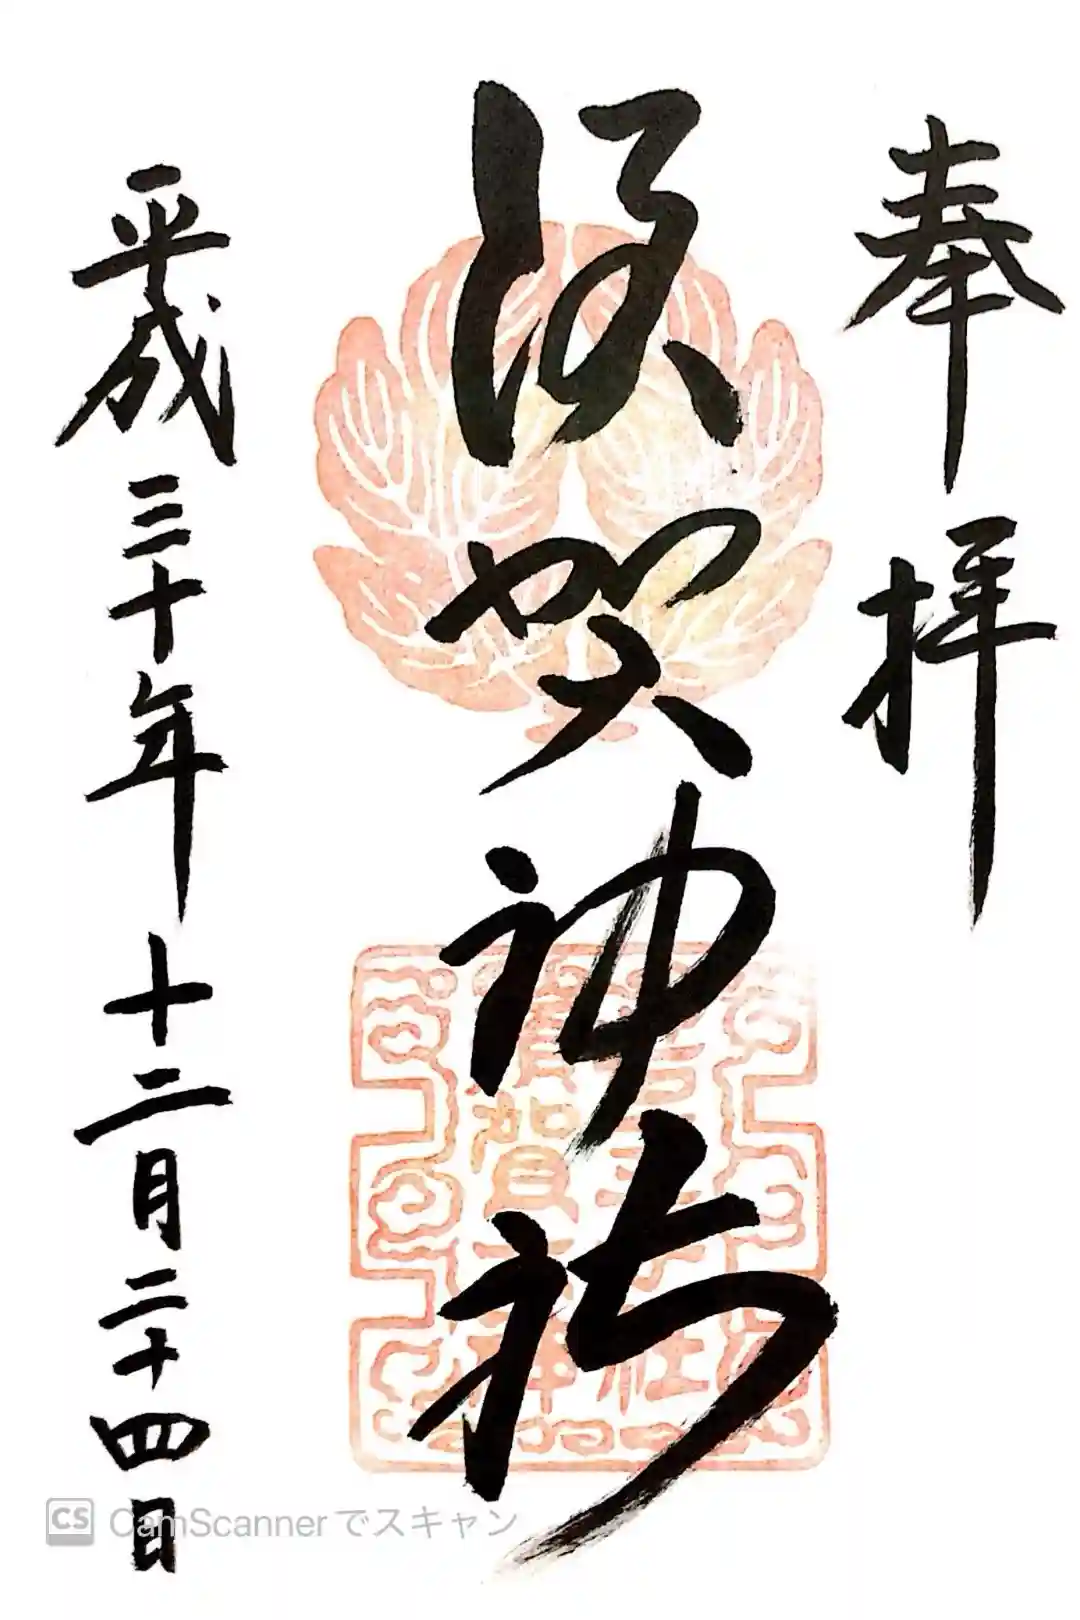 奉拝
須賀神社
平成三十年十二月二十四日
CS CamScannerでスキャン